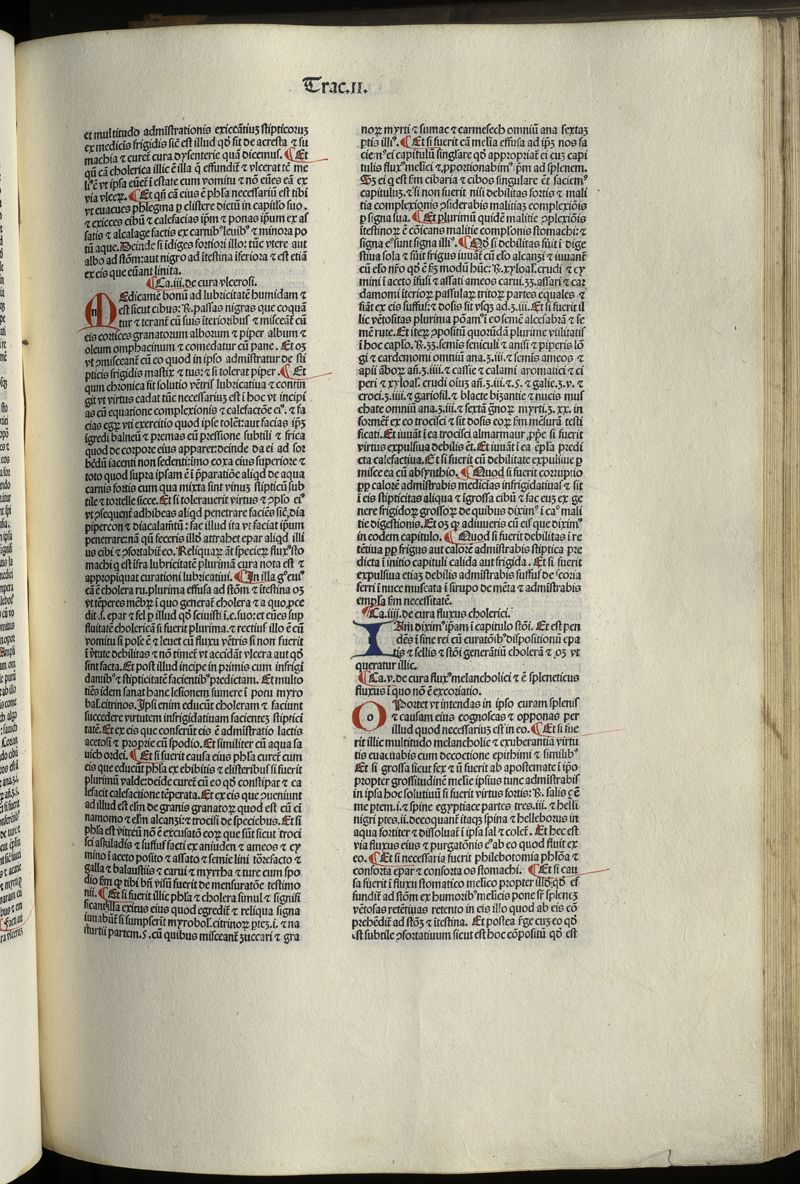 Trac.II.
et multitudo admistrationis exiccãtiuꝫ stipticoruꝫ
ex medicis frigidis sic̃ est illud qđ fit de acresta ⁊ su
machia ⁊ curet̃ cura dysenterie quã dicemus. ¶ Et
qñ cã cholerica illic ẽ illa
via vlceꝝ. ¶ Et qñ cã eius ẽ phl̃a necessariũ est tibi
vt euacues phlegma p̱ clistere dictũ in capitło suo.
⁊ exicces cibũ ⁊ calefacias ip̃m ⁊ ponas ipũm ex as
satis ⁊ alcalage factis ex carnibꝰ leuibꝰ ⁊ minora po
tũ aque. Deinde si ĩdiges fortiori illo: tũc vtere aut
albo ad stõm: aut nigro ad ĩtestina ĩferiora ⁊ est etiã
ex eis que
¶ Ca.iii. de cura vlcerosi.
MEdicamẽ bonũ ad lubricitatẽ humidam ⁊
est sicut cibus: ℞. passas nigras que coquã
tur ⁊ terant̃ cũ suis ĩterioribus ⁊ misceãt̃ cũ
eis cortices granatorum alborum ⁊ piper album ⁊
oleum omphacinum ⁊ comedatur cũ pane. Et oꝫ
vt ꝯmisceant̃ cũ eo quod in ipso admistratur de sti
pticis frigidis mastix ⁊ tus: ⁊ si tolerat piper. ¶ Et
qum chronica sit solutio vẽtris lubricatiua ⁊ contin
git vt virtus cadat tũc necessariuꝫ est ĩ hoc vt incipi
as cũ equatione complexionis ⁊ calefactõe eiꝰ. ⁊ fa
cias egꝝ vti exercitio quod ipse tolẽt: aut facias ip̃ꝫ
ĩgredi balneũ ⁊ premas cũ pressione subtili ⁊ frica
quod de corpore eius apparet: deinde da ei ad sor
bẽdũ iacenti non sedenti: imo coxa eius superiore ⁊
toto quod supra ipsam ẽ ĩ p̃paratiõe aliqđ de aqua
carnis fortis cum qua mixta sint vinuꝫ stipticũ sub
tile ⁊ tortelle sicce. Et si tolerauerit virtus ⁊ ꝯpso eiꝰ
vt ꝯsequent̃ adhibeas aliqđ penetrare faciẽs sic̃ dia
pipereon ⁊ diacalamĩtũ: fac illud ita vt faciat ipũm
penetrare: nã qñ feceris illđ attrahet epar aliqđ illi
us cibi ⁊ ꝯfortabit̃ eo. Reliquaꝝ aũt specieꝝ fluxꝰ sto
machi
appropiquat curationi lubricatiui. ¶ In illa
cã ẽ cholera
vt tẽperes mẽbꝝ ĩ quo generat̃ cholera ⁊ a quo ꝓce
dit .i. epar ⁊ fel
fluitatẽ cholericã si fuerit plurima. ⁊ rectius illo ẽ cũ
vomitu si
sint facta. Et post illud incipe in primis cum infrigi
dantibꝰ ⁊ stipticitatẽ facientibꝰ predictam. Et multo
tiẽs idem sanat hanc lesionem sumere ĩ potu myro
bal. citrinos. Ipsi enim educũt choleram ⁊ faciunt
succedere virtutem infrigidatiuam facientes stiptici
tatẽ. Et ex eis que conserũt eis ẽ admistratio lactis
acetosi ⁊ proprie cũ spodio. Et similiter cũ aqua sa
uich ordei. ¶ Et si fuerit causa eius phl̃a curet̃ cum
eis que educũt phl̃a ex ebibitis ⁊ clisteribus si fuerit
plurimũ valde: deĩde curet̃ cũ eo qđ constipat ⁊ ca
lefacit calefactione tẽperata. Et ex eis que ꝓueniunt
ad illud est elm̃ de granis granatoꝝ quod est cũ ci
namomo ⁊ elm̃ alcanzi: ⁊ trocisi de speciebus. Et si
phl̃a est vitreũ nõ ẽ excusatõ eoꝝ que sũt sicut troci
sci askiladis ⁊ suffuf facti ex aniuden ⁊ ameos ⁊ cy
mino ĩ aceto posito ⁊ assato ⁊ semĩe lini torrefacto ⁊
galla ⁊ balaustiis ⁊ carui ⁊ myrrha ⁊ ture cum spo
dio
nii. ¶ Et si fuerit illic phl̃a ⁊ cholera simul ⁊ signifi
ficantilla exitus eius quod egredit̃ ⁊ reliqua signa
iuuabit̃ si sumpserit myrobol. citrinoꝝ ptꝫ.i. ⁊ na
sturtii partem.5. cũ quibus misceant̃ zuccari ⁊ gra
noꝝ myrti ⁊ sumac ⁊ carmesech omniũ ana sextaꝫ
ptis illiꝰ. ¶ Et si fuerit cã melĩa effusa ad ip̃ꝫ nos fa
ciemꝰ ei capitulũ singulare qđ appropriat̃ ei cuꝫ capi
tulis fluxꝰ melici ⁊ ꝓportionabimꝰ ip̃m ad splenem.
Sꝫ ei q est fm̃ cibaria ⁊ cibos singulare ẽt faciemꝰ
capituluꝫ. ⁊ si non fuerit nisi debilitas fortis ⁊ mali
tia complexionis ꝯsiderabis malitiaꝫ complexiõis
p̱ signa sua. ¶ Et plurimũ quidẽ malitie ꝯplexiõis
ĩtestinoꝝ ẽ cõicans malitie complsonis stomachi: ⁊
signa eꝰ sunt signa illiꝰ. ¶ Qđ si debilitas fũit ĩ dige
stiua sola ⁊ fũit frigus iuuat̃ cũ elso alcanzi ⁊ iuuant̃
cũ elso nr̃o qđ ẽ fꝫ modũ hũc: ℞. xyloal. crudi ⁊ cy
mini ĩ aceto ĩfusi ⁊ assati ameos carui .ʒʒ. assari ⁊ car
damomi iterioꝝ passulaꝝ tritoꝝ partes equales ⁊
fiãt ex eis suffuf: ⁊ dosis fit vsqꝫ ad .ʒ.iii. Et si fuerit il
lic vẽtositas plurima põant̃ ĩ eo semẽ alecfabã ⁊ se
mẽ rute. Et iteꝝ ꝯpositũ quorũdã plurime vtilitatis
ĩ hoc caplo. ℞. ʒʒ. semis feniculi ⁊ anisi ⁊ piperis lõ
gi ⁊ cardemomi omniũ ana .ʒ.iii. ⁊ semis ameos ⁊
apii ãboꝝ añ .ʒ.iiii. ⁊ cassie ⁊ calami aromatici ⁊ ci
peri ⁊ xyloal. crudi oĩuꝫ añ .ʒ.iii.⁊.5. ⁊ galie .ʒ.v. ⁊
croci .ʒ.iiii. ⁊ gariofil. ⁊ blacte bizantie ⁊ nucis mus
chate omniũ ana .ʒ.iii. ⁊ sextã gñoꝝ myrti .ʒ.xx. in
forment̃ ex eo trocisci ⁊ fit dosis eoꝝ fm̃ mẽsurã testi
ficati. Et iuuant̃ ĩ ea trocisci almarmaur ꝓprie si fuerit
virtus expulsiua debilis ẽt. Et iuuant̃ ĩ ea ẽplã predi
cta calefactiua. Et si fuerit cũ debilitate expulsiue p̱
misce ea cũ absynthio. ¶ Quod si fuerit corruptio
pp̱ calorẽ admistrabis medicias infrigidatiuas ⁊ fit
ĩ eis stipticitas aliqua ⁊ ĩgrossa cibũ ⁊ fac euꝫ ex ge
nere frigidoꝝ grossoꝝ de quibus diximꝰ ĩ cãꝰ mali
tie digestionis. Et oꝫ qꝫ adiuueris cũ eis que diximꝰ
in eodem capitulo. ¶ Quod si fuerit debilitas ĩ re
tẽtiua pp̱ frigus aut calorẽ admistrabis stiptica pre
dicta ĩ initio capituli calida aut frigida. Et si fuerit
expulsiua etiaꝫ debilis admistrabis suffuf de scoria
ferri ĩ nuce muscata ĩ sirupo de mẽta ⁊ admistrabis
emp̱lsa fm̃ necessitatẽ.
¶ Ca.iiii. de cura fluxus cholerici.
IAm diximꝰ ipsam ĩ capitulo stõi. Et est pen
dẽs ĩ sine rei cũ curatõibꝰ dispositionũ epa
tis ⁊ fellis ⁊ stõi generãtiũ cholerã ⁊ .oꝫ vt
queratur illic.
¶ Ca.v. de cura fluxꝰ melancholici ⁊ ẽ spleneticus
fluxus ĩ quo nõ ẽ excoriatio.
OPortet vt intendas in ipso curam splenis
⁊ causam eius cognoscas ⁊ opponas per
illud quod necessariuꝫ est in eo. ¶ Et si fue
rit illic multitudo melancholie ⁊ exuberantia virtu
tis euacuabis cum decoctione epithimi ⁊ similibꝰ
Et si grossa sicut fex ⁊ ñ fuerit ab apostemate ĩ ip̃o
propter grossitudinẽ melie ipsius tunc admistrabis
in ipsa hoc solutiuũ si fuerit virtus fortis: ℞. salis
me ptem.i. ⁊ spine egyptiace partes tres .iii. ⁊ helli
nigri ptes.ii. decoquant̃ itaqꝫ spina ⁊ helleborus in
aqua fortiter ⁊ dissoluat̃ ĩ ipsa sal ⁊ colet̃. Et hec est
via fluxus eius ⁊ purgatiõnis eꝰ ab eo quod fluit ex
eo. ¶ Et si necessaria fuerit phlebotomia phlõa ⁊
conforta epar ⁊ conforta os stomachi. ¶ Et si cau
sa fuerit ĩ fluxu stomatico melico propter illđ qđ ef
fundit̃ ad stõm ex humoribꝰ melicis pone sr̃ splenẽꝫ
vẽtosas retẽtiuas retento in eis illo quod ab eis cõ
prehẽdit̃ ad stõꝫ ⁊ ĩtestina. Et postea
est subtile ꝯfortatiuum sicut est hoc cõpositũ qđ est